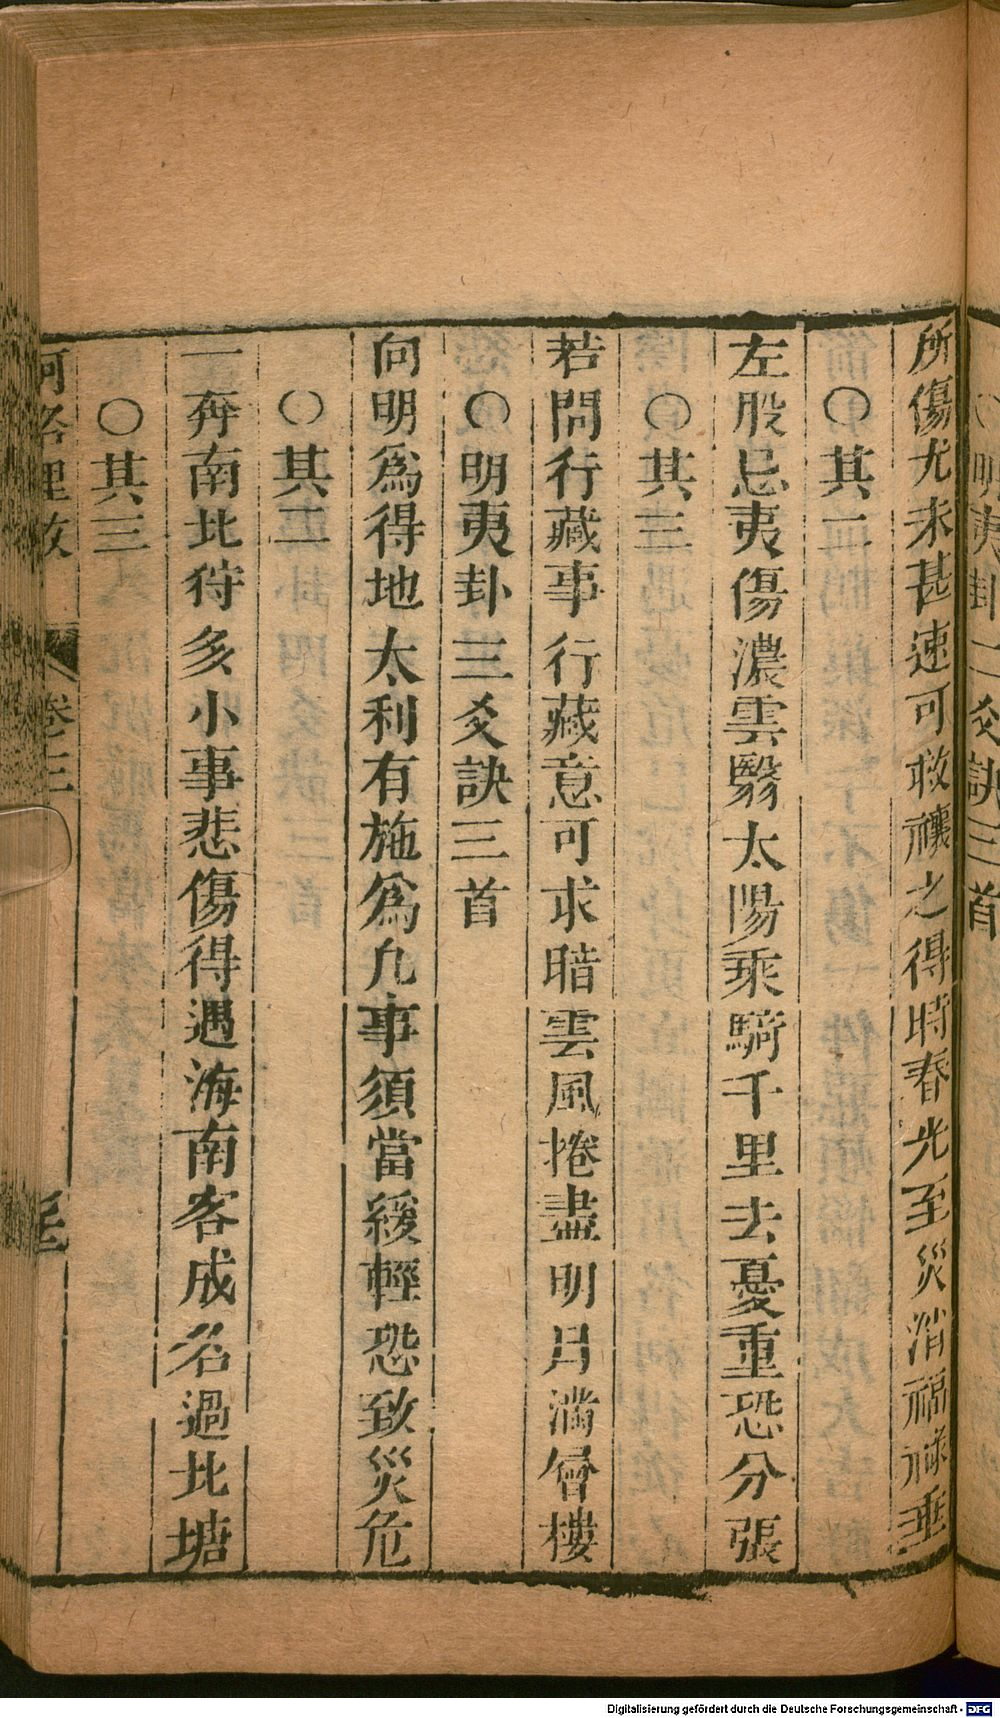 ○明夷卦二爻訣三首
所傷尤未甚速可救禳之得時春光至災消福祿垂
○其二
左股忌夷傷濃雲翳太陽乘騎千里去憂重恐分張
○其三
若問行藏事行藏意可求暗雲風捲盡明月滿層樓
○明夷卦三爻訣三首
向明爲得地太利有施爲凡事須當緩輕恐致災危
○其二
一奔南北狩多小事悲傷得遇海南客成名過北塘
○其三
河洛理數
卷之三
Digitalisierung gefördert durch die Deutsche Forschungsgemeinschaft - DFG